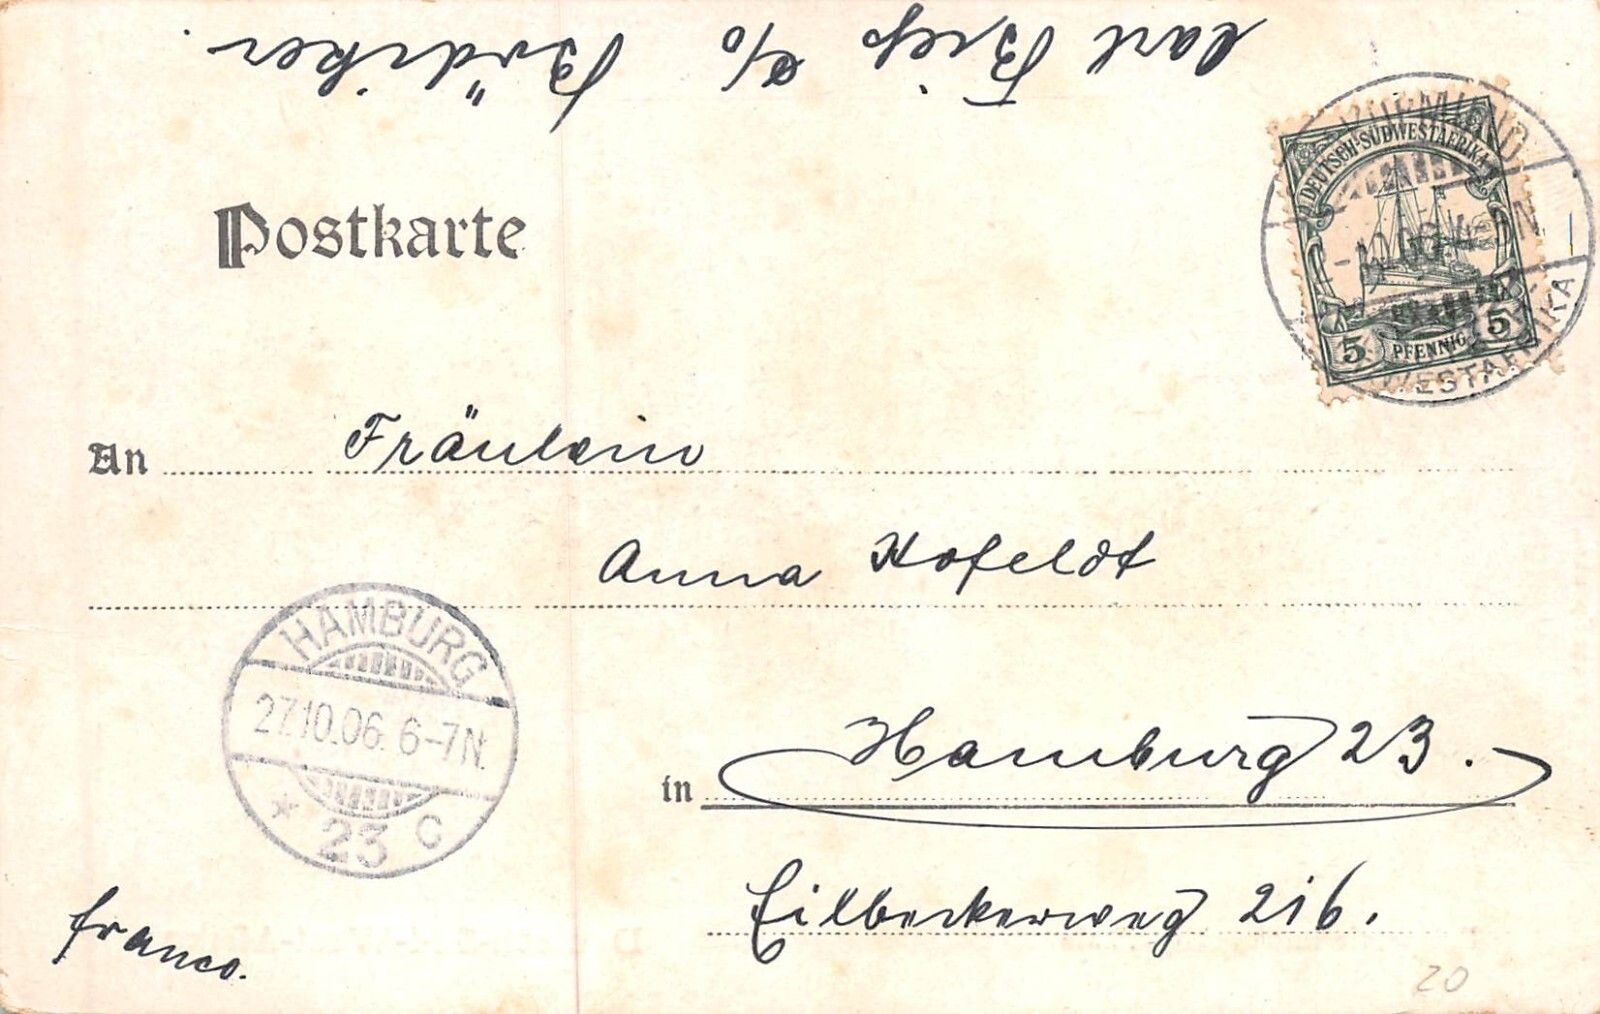 Carl c/o Bödiker.
Postkarte
DEUTSCH-SÜDWESTAFRIKA
5 PFENNIG 5
An Fräulein
Anna Hofeldt
HAMBURG
27.10.06. 6-7N.
* 23 C
in Hamburg 23.
Eilbeckerweg 216.
franco.
20